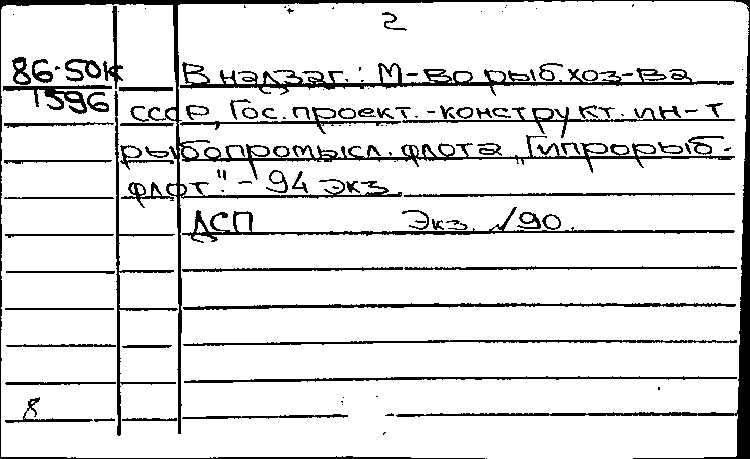 2
86-50к
1596
В надзаг.: М-во рыб.хоз-ва
СССР, Гос.проект.-конструкт. ин-т
рыбопромысл. флота „Гипрорыб-
флот". - 94 экз.
ДСП Экз. №90.
8